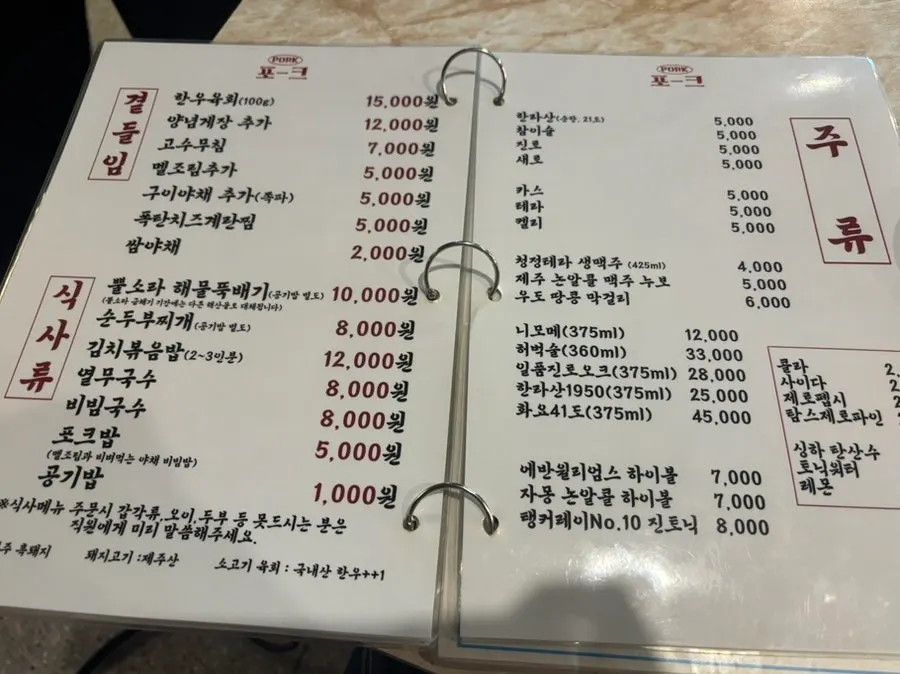 PORK
포크
곁들임
한우육회(100g) 15,000원
양념게장 추가 12,000원
고수무침 7,000원
멜조림추가 5,000원
구이야채 추가(쪽파) 5,000원
폭탄치즈계란찜 5,000원
쌈야채 2,000원
식사류
뿔소라 해물뚝배기(공기밥 별도) 10,000원
(뿔소라 금해기 기간에는 다른 해산물로 대체됩니다)
순두부찌개(공기밥 별도) 8,000원
김치볶음밥(2~3인분) 12,000원
열무국수 8,000원
비빔국수 8,000원
포크밥 5,000원
(멜조림과 비벼먹는 야채 비빔밥)
공기밥 1,000원
※식사메뉴 주문시 갑각류,오이,두부 등 못드시는 분은
직원에게 미리 말씀해주세요.
주 흑돼지 돼지고기 :제주산 소고기 육회 : 국내산 한우++1
PORK
포크
주류
한라산(순한, 21도) 5,000
참이슬 5,000
진로 5,000
새로 5,000
카스 5,000
테라 5,000
켈리 5,000
청정테라 생맥주 (425ml) 4,000
제주 논알콜 맥주 누보 5,000
우도 땅콩 막걸리 6,000
니모메(375ml) 12,000
허벅술(360ml) 33,000
일품진로오크(375ml) 28,000
한라산1950(375ml) 25,000
화요41도(375ml) 45,000
에반윌리엄스 하이볼 7,000
자몽 논알콜 하이볼 7,000
탱커레이No.10 진토닉 8,000
콜라 2,
사이다 2
제로펩시 2
탐스제로파인
싱하 탄산수
토닉워터
레몬